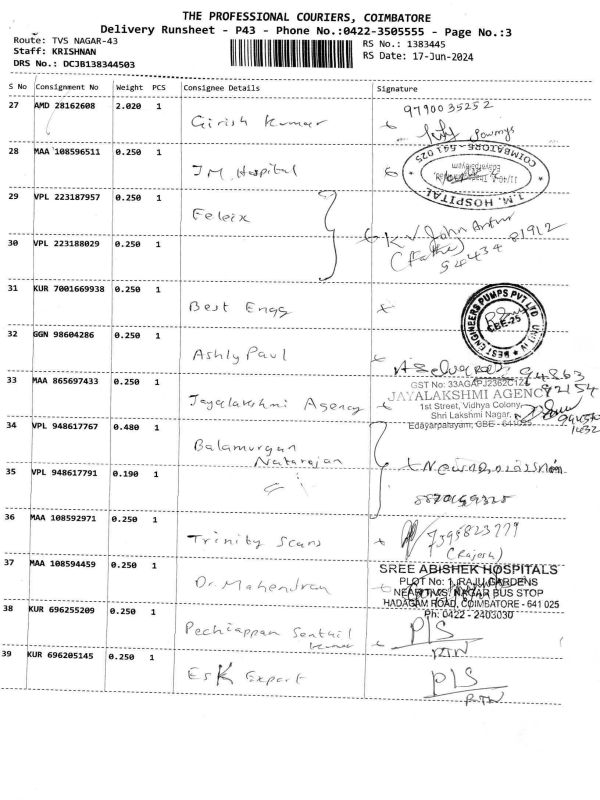 THE PROFESSIONAL COURIERS, COIMBATORE
Delivery Runsheet - P43 - Phone No.:0422-3505555 - Page No.:3
Route: TVS NAGAR-43
Staff: KRISHNAN
DRS No.: DCJB138344503
RS No.: 1383445
RS Date: 17-Jun-2024
S No Consignment No Weight PCS Consignee Details Signature
27 AMD 28162608 2.020 1 Girish Kumar 9790035252
28 MAA 108596511 0.250 1 J.M. Hospital
J.M. HOSPITAL
COIMBATORE - 641 025
29 VPL 223187957 0.250 1 Feleix
30 VPL 223188029 0.250 1 K.V. John
(Father)
54434 81912
31 KUR 7001669938 0.250 1 Best Engg
BEST ENGINEERS PUMPS PVT LTD UNIT IV
CBE-25
32 GGN 98604286 0.250 1 Ashly Paul
94863
92154
33 MAA 865697433 0.250 1 Jayalakshmi Agency
GST No: 33AGAPJ2362C1Z
JAYALAKSHMI AGENCY
1st Street, Vidhya Colony,
Shri Lakshmi Nagar,
Edayarpalayam, CBE - 641025
34 VPL 948617767 0.480 1 Balamurgan
Natarajan
35 VPL 948617791 0.190 1
36 MAA 108592971 0.250 1 Trinity Scans 7395823779
(Rajesh)
37 MAA 108594459 0.250 1 Dr. Mahendran
SREE ABISHEK HOSPITALS
PLOT No: 1, RAJU GARDENS
NEAR TVS. NAGAR BUS STOP
HADAGAM ROAD, COIMBATORE - 641 025
Ph: 0422 - 2403030
38 KUR 696255209 0.250 1 Pechiappan Senthil
Kumar
P/S
RTN
39 KUR 696205145 0.250 1 Esk Export
P/S
RTN